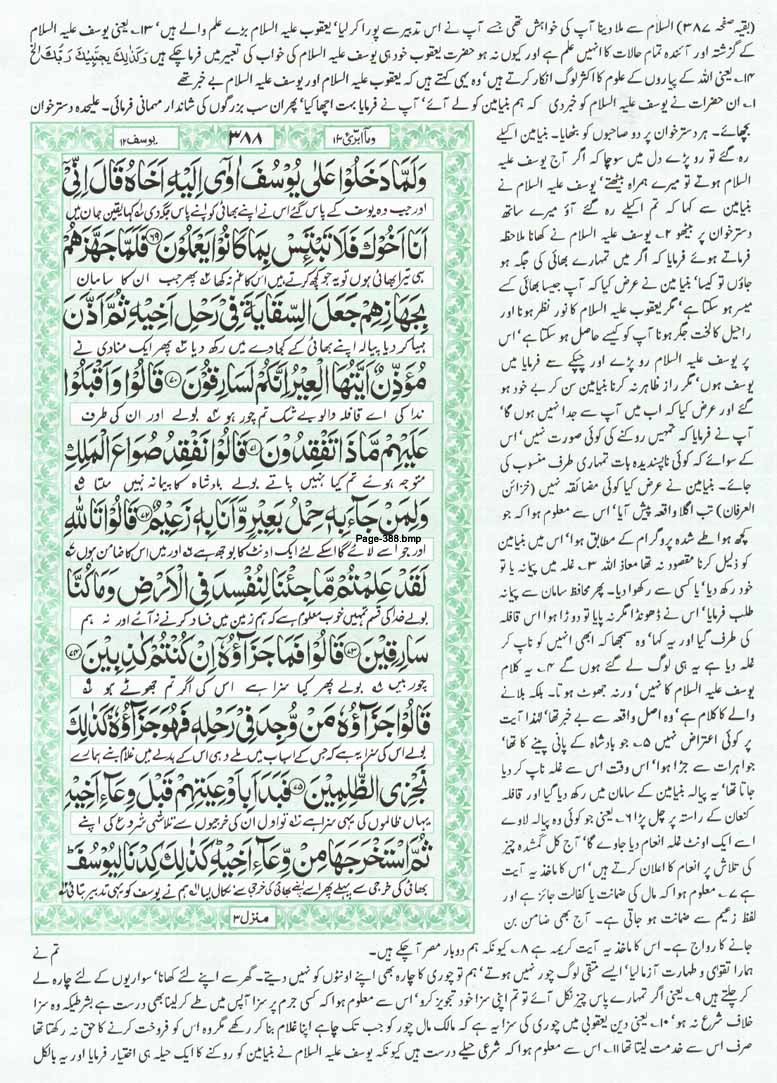 (بقیہ صفحہ ۳۸۷) السلام سے ملا دینا آپ کی خواہش تھی جسے آپ نے اس تدبیر سے پورا کر لیا' یعقوب علیہ السلام بڑے علم والے ہیں' ۱۳۔ یعنی یوسف علیہ السلام
کے گزشتہ اور آئندہ تمام حالات کا انہیں علم ہے اور کیوں نہ ہو حضرت یعقوب خود ہی یوسف علیہ السلام کی خواب کی تعبیر میں فرما چکے ہیں وَكَذٰلِكَ يَجْتَبِيْكَ رَبُّكَ الخ
۱۴۔ یعنی اللہ کے پیاروں کے علوم کا اکثر لوگ انکار کرتے ہیں' وہ یہی کہتے ہیں کہ یعقوب علیہ السلام اور یوسف علیہ السلام بے خبر تھے
۱۔ ان حضرات نے یوسف علیہ السلام کو خبر دی کہ ہم بنیامین کو لے آئے' آپ نے فرمایا بہت اچھا کیا' پھر ان سب بزرگوں کی شاندار مہمانی فرمائی۔ علیحدہ دسترخوان
بچھائے۔ ہر دسترخوان پر دو صاحبوں کو بٹھایا۔ بنیامین اکیلے
رہ گئے تو رو پڑے دل میں سوچا کہ اگر آج یوسف علیہ
السلام ہوتے تو میرے ہمراہ بیٹھتے' یوسف علیہ السلام نے
بنیامین سے کہا کہ تم اکیلے رہ گئے آؤ میرے ساتھ
دسترخوان پر بیٹھو ۲۔ یوسف علیہ السلام نے کھانا ملاحظہ
فرماتے ہوئے فرمایا کہ اگر میں تمہارے بھائی کی جگہ ہو
جاؤں تو کیسا' بنیامین نے عرض کیا کہ آپ جیسا بھائی کسے
میسر ہو سکتا ہے' مگر یعقوب علیہ السلام کا نور نظر ہونا اور
راحیل کا لخت جگر ہونا آپ کو کیسے حاصل ہو سکتا ہے' اس
پر یوسف علیہ السلام رو پڑے اور چپکے سے فرمایا میں
یوسف ہوں' مگر راز ظاہر نہ کرنا بنیامین سن کر بے خود ہو
گئے اور عرض کیا کہ اب میں آپ سے جدا نہیں ہوں گا'
آپ نے فرمایا کہ تمہیں روکنے کی کوئی صورت نہیں' اس
کے سوائے کہ کوئی ناپسندیدہ بات تمہاری طرف منسوب کی
جائے۔ بنیامین نے عرض کیا کوئی مضائقہ نہیں (خزائن
العرفان) تب اگلا واقعہ پیش آیا' اس سے معلوم ہوا کہ جو
کچھ ہوا طے شدہ پروگرام کے مطابق ہوا' اس میں بنیامین
کو ذلیل کرنا مقصود نہ تھا معاذ اللہ ۳۔ غلہ میں پیمانہ یا تو
خود رکھ دیا' یا کسی سے رکھوا دیا۔ پھر محافظ سامان سے پیمانہ
طلب فرمایا' اس نے ڈھونڈا اگر نہ پایا تو دوڑا ہوا اس قافلہ
کی طرف گیا اور یہ کہا' وہ سمجھا کہ ابھی انہیں کو ناپ کر
غلہ دیا ہے یہ ہی لوگ لے گئے ہوں گے ۴۔ یہ کلام
یوسف علیہ السلام کا نہیں' ورنہ جھوٹ ہوتا۔ بلکہ بلانے
والے کا کلام ہے' وہ اصل واقعہ سے بے خبر تھا' لہٰذا آیت
پر کوئی اعتراض نہیں ۵۔ جو بادشاہ کے پانی پینے کا تھا'
جواہرات سے جڑا ہوا' اس وقت اس سے غلہ ناپ کر دیا
جاتا تھا' یہ پیالہ بنیامین کے سامان میں رکھ دیا گیا اور قافلہ
کنعان کے راستہ پر چل پڑا ۶۔ یعنی جو کوئی وہ پیالہ لاوے
اسے ایک اونٹ غلہ انعام دیا جاوے گا' آج کل گمشدہ چیز
کی تلاش پر انعام کا اعلان کرتے ہیں' اس کا ماخذ یہ آیت
ہے ۷۔ معلوم ہوا کہ مال کی ضمانت یا کفالت جائز ہے اور
لفظ زعیم سے ضمانت ہو جاتی ہے۔ آج بھی ضامن بن
جانے کا رواج ہے۔ اس کا ماخذ یہ آیت کریمہ ہے ۸۔ کیونکہ ہم دوبار مصر آ چکے ہیں۔ تم نے
ہمارا تقویٰ و طہارت آزما لیا' ایسے متقی لوگ چور نہیں ہوتے' ہم تو چوری کا چارہ بھی اپنے اونٹوں کو نہیں دیتے۔ گھر سے اپنے لئے کھانا' سواریوں کے لئے چارہ لے
کر چلتے ہیں ۹۔ یعنی اگر تمہارے پاس چیز نکل آئے تو تم اپنی سزا خود تجویز کرو' اس سے معلوم ہوا کہ کسی جرم پر سزا آپس میں طے کر لینا بھی درست ہے بشرطیکہ وہ سزا
خلاف شرع نہ ہو' ۱۰۔ یعنی دین یعقوبی میں چوری کی سزا یہ ہے کہ مالک مال چور کو جب تک چاہے اپنا غلام بنا کر رکھے مگر وہ اس کو فروخت کرنے کا حق نہ رکھتا تھا
صرف اس سے خدمت لیتا تھا ۱۱۔ اس سے معلوم ہوا کہ شرعی حیلے درست ہیں کیونکہ یوسف علیہ السلام نے بنیامین کو روکنے کا ایک حیلہ ہی اختیار فرمایا اور یہ بالکل
وما ابرئ ۱۳
۳۸۸
یوسف ۱۲
وَلَمَّا دَخَلُوْا عَلٰى يُوْسُفَ اٰوٰۤى اِلَيْهِ اَخَاهُ قَالَ اِنِّيْۤ
اور جب وہ یوسف کے پاس گئے اس نے اپنے بھائی کو اپنے پاس جگہ دی کہا یقین جان میں
اَنَا اَخُوْكَ فَلَا تَبْتَىِٕسْ بِمَا كَانُوْا يَعْمَلُوْنَ ﴿۶۹﴾ فَلَمَّا جَهَّزَهُمْ
ہی تیرا بھائی ہوں تو یہ جو کچھ کرتے ہیں اس کا غم نہ کھا پھر جب ان کا سامان
بِجَهَازِهِمْ جَعَلَ السِّقَايَةَ فِيْ رَحْلِ اَخِيْهِ ثُمَّ اَذَّنَ
مہیا کر دیا پیالہ اپنے بھائی کے کجاوے میں رکھ دیا پھر ایک منادی نے
مُؤَذِّنٌ اَيَّتُهَا الْعِيْرُ اِنَّكُمْ لَسٰرِقُوْنَ ﴿۷۰﴾ قَالُوْا وَاَقْبَلُوْا
ندا کی اے قافلہ والو بے شک تم چور ہو بولے اور ان کی طرف
عَلَيْهِمْ مَّاذَا تَفْقِدُوْنَ ﴿۷۱﴾ قَالُوْا نَفْقِدُ صُوَاعَ الْمَلِكِ
متوجہ ہوئے تم کیا نہیں پاتے بولے بادشاہ کا پیمانہ نہیں ملتا
وَلِمَنْ جَآءَ بِهٖ حِمْلُ بَعِيْرٍ وَّاَنَا بِهٖ زَعِيْمٌ ﴿۷۲﴾ قَالُوْا تَاللّٰهِ
Page-388.bmp
اور جو اسے لائے گا اس کے لئے ایک اونٹ کا بوجھ ہے اور میں اس کا ضامن ہوں
لَقَدْ عَلِمْتُمْ مَّا جِئْنَا لِنُفْسِدَ فِي الْاَرْضِ وَمَا كُنَّا
بولے خدا کی قسم تمہیں خوب معلوم ہے کہ ہم زمین میں فساد کرنے نہ آئے اور نہ ہم
سٰرِقِيْنَ ﴿۷۳﴾ قَالُوْا فَمَا جَزَآؤُهٗۤ اِنْ كُنْتُمْ كٰذِبِيْنَ ﴿۷۴﴾
چور ہیں بولے پھر کیا سزا ہے اس کی اگر تم جھوٹے ہو
قَالُوْا جَزَآؤُهٗ مَنْ وُّجِدَ فِيْ رَحْلِهٖ فَهُوَ جَزَآؤُهٗ كَذٰلِكَ
بولے اس کی سزا یہ ہے کہ جس کے اسباب میں ملے وہی اس کے بدلے میں غلام بنے ہمارے
نَجْزِي الظّٰلِمِيْنَ ﴿۷۵﴾ فَبَدَاَ بِاَوْعِيَتِهِمْ قَبْلَ وِعَآءِ اَخِيْهِ
یہاں ظالموں کی یہی سزا ہے تو اول ان کی خرجیوں سے تلاشی شروع کی اپنے
ثُمَّ اسْتَخْرَجَهَا مِنْ وِّعَآءِ اَخِيْهِ كَذٰلِكَ كِدْنَا لِيُوْسُفَ
بھائی کی خرجی سے پہلے پھر اسے اپنے بھائی کی خرجی سے نکال لیا ہم نے یوسف کو یہی تدبیر بتائی
منزل ۳